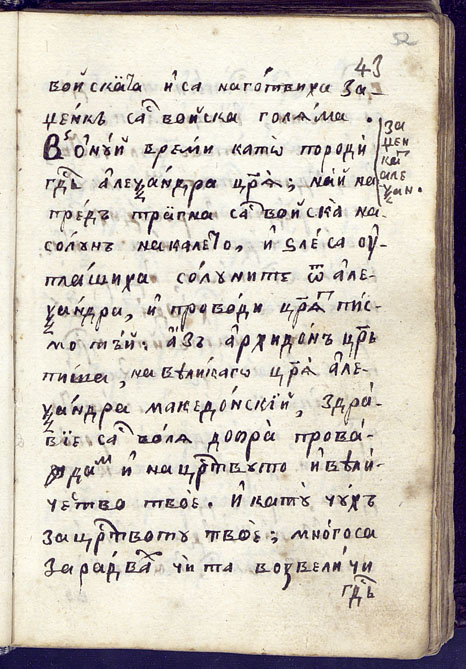 43
войскꙗ̀та и са наготвиха за-
менкъ са̾ войска голѧма .
В онꙋй време като породи
гдⷭ҇ь алеѯандра цр҃ѧ ; най на
предъ трагна са̾ войска на
солꙋнъ на калето , и ѕле са оу-
плашиха солꙋните ѿ але-
ѯандра , и проводи цр҃ѧ пис-
мо тѣй : азъ архидонъ цр҃ь
пиша , на великаго цр҃ѧ але-
ѯандра македонскїй , здра-
вїе са̾ волѧ добра прова-
ждамⷨ и на црⷭ҇твꙋто и вели-
чество твое . И като чꙋхъ
за црⷭ҇твотꙋ твое ; много са
зарадва̾ чи та возвеличи
гдⷭ҇ь
за
мен
ка
але
ѯан .